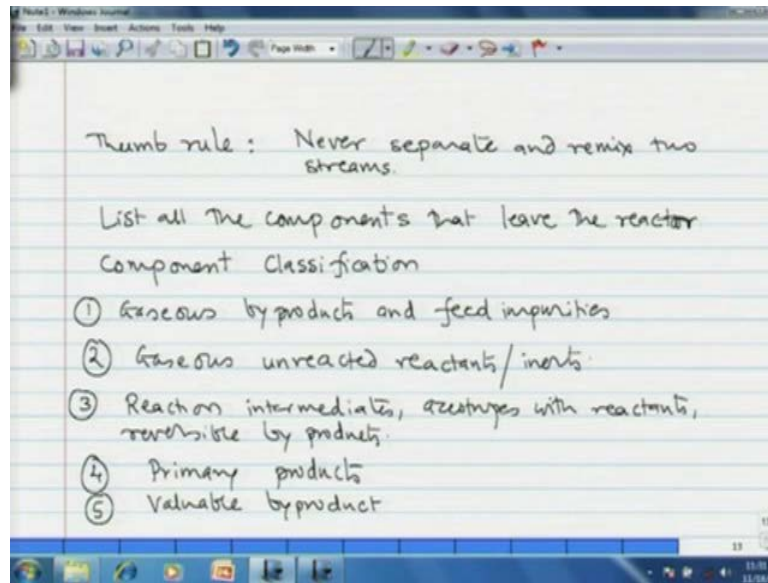 Note1 - Windows Journal
File Edit View Insert Actions Tools Help
Page Width
Thumb rule : Never separate and remix two
streams.
List all the components that leave the reactor
Component Classification
① Gaseous byproducts and feed impurities
② Gaseous unreacted reactants/inerts.
③ Reaction intermediates, azeotropes with reactants,
reversible by products.
④ Primary products
⑤ Valuable byproduct
13